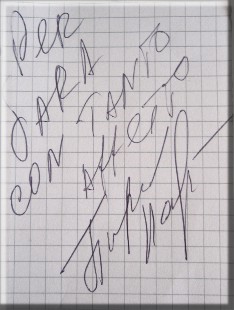 PER
SARA
CON TANTO
AFFETTO